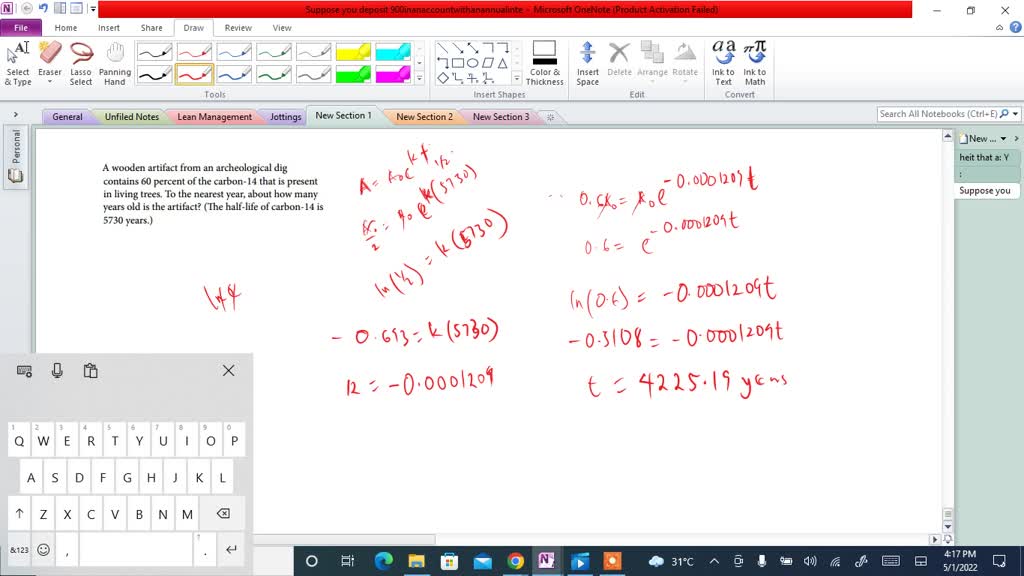 Suppose you deposit 900inanaccountwithanannualinte - Microsoft OneNote (Product Activation Failed)
File Home Insert Share Draw Review View
Select & Type
Eraser
Lasso Select
Panning Hand
Color & Thickness
Insert Space
Delete
Arrange
Rotate
Ink to Text
Ink to Math
Tools
Insert Shapes
Edit
Convert
General Unfiled Notes Lean Management Jottings New Section 1 New Section 2 New Section 3
Search All Notebooks (Ctrl+E)
Personal
New ...
heit that a: Y
:
Suppose you
A wooden artifact from an archeological dig
contains 60 percent of the carbon-14 that is present
in living trees. To the nearest year, about how many
years old is the artifact? (The half-life of carbon-14 is
5730 years.)
ln(1/2) = k(5730)
- 0.693 = k(5730)
k = -0.0001209
0.6A₀ = A₀e^-0.0001209t
0.6 = e^-0.0001209t
ln(0.6) = -0.0001209t
-0.5108 = -0.0001209t
t = 4225.19 years
1 2 3 4 5 6 7 8 9 0
Q W E R T Y U I O P
A S D F G H J K L
Z X C V B N M
&123 , ? .
31°C
4:17 PM
5/1/2022